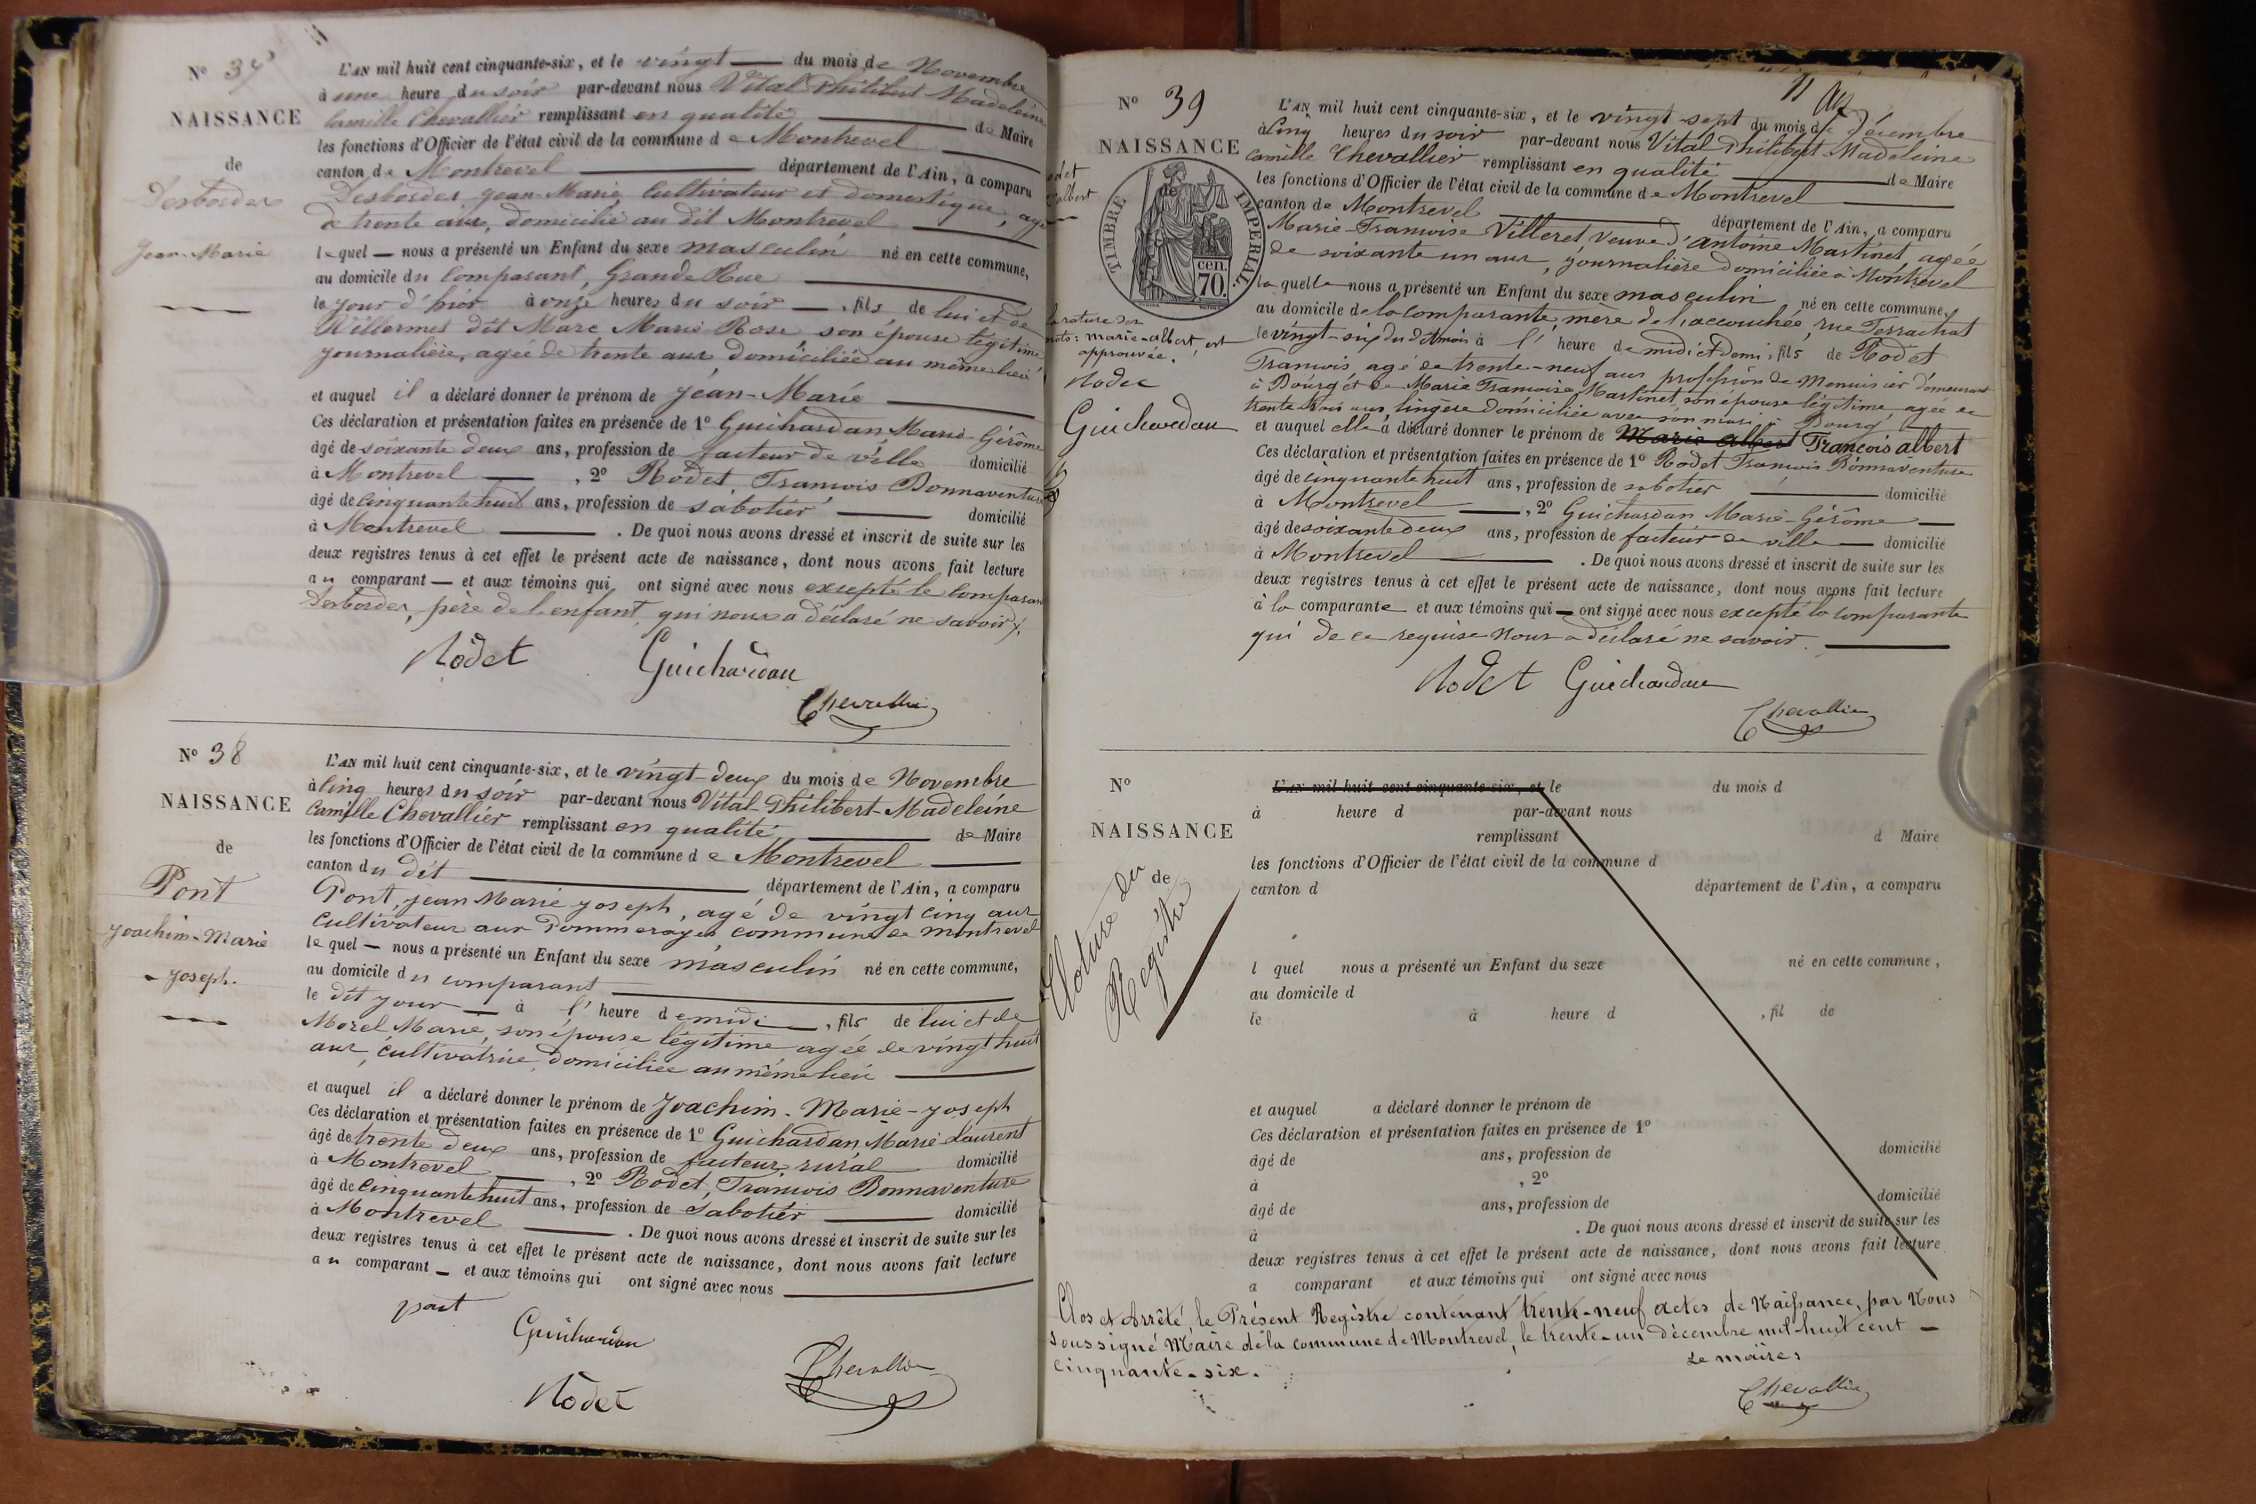 N° 37
NAISSANCE
de
Desbordes
Jean-Marie
L'AN mil huit cent cinquante-six, et le vingt du mois de Novembre
à une heure du soir par-devant nous Vital Philibert Madeleine
Camille Chevallier remplissant en qualité de Maire
les fonctions d'Officier de l'état civil de la commune de Montrevel
canton de Montrevel département de l'Ain, a comparu
Desbordes Jean-Marie, Cultivateur et domestique, agé
de trente ans, domicilié au dit Montrevel
lequel nous a présenté un Enfant du sexe masculin né en cette commune,
au domicile du Comparant, Grande Rue
le jour d'hier à onze heures du soir, fils de lui et de
Villermet dit Marc Marie Rose son épouse légitime
journalière, agée de trente ans, domiciliée au même lieu
et auquel il a déclaré donner le prénom de Jean-Marie
Ces déclaration et présentation faites en présence de 1° Guichardan, Marie-Gérôme
âgé de soixante deux ans, profession de facteur de ville domicilié
à Montrevel, 2° Rodet, François Bonnaventure
âgé de cinquante huit ans, profession de sabotier domicilié
à Montrevel. De quoi nous avons dressé et inscrit de suite sur les
deux registres tenus à cet effet le présent acte de naissance, dont nous avons fait lecture
au comparant et aux témoins qui ont signé avec nous excepté le Comparant
Desbordes, père de l'enfant, qui nous a déclaré ne savoir.
Rodet Guichardan
Chevallier
N° 38
NAISSANCE
de
Pont
Joachim-Marie
Joseph.
L'AN mil huit cent cinquante-six, et le vingt-deux du mois de Novembre
à Cinq heures du soir par-devant nous Vital Philibert-Madeleine
Camille Chevallier remplissant en qualité de Maire
les fonctions d'Officier de l'état civil de la commune de Montrevel
canton du dit département de l'Ain, a comparu
Pont, Jean Marie Joseph, agé de vingt cinq ans
Cultivateur aux Pommerayes commune de Montrevel
lequel nous a présenté un Enfant du sexe masculin né en cette commune,
au domicile du comparant
le dit jour à l'heure de midi, fils de lui et de
Morel Marie, son épouse légitime agée de vingt huit
ans, cultivatrice, domiciliée au même lieu
et auquel il a déclaré donner le prénom de Joachim-Marie-Joseph
Ces déclaration et présentation faites en présence de 1° Guichardan, Marie-Laurent
âgé de trente deux ans, profession de facteur rural domicilié
à Montrevel, 2° Rodet, François Bonnaventure
âgé de Cinquante huit ans, profession de Sabotier domicilié
à Montrevel. De quoi nous avons dressé et inscrit de suite sur les
deux registres tenus à cet effet le présent acte de naissance, dont nous avons fait lecture
au comparant et aux témoins qui ont signé avec nous
pont
Guichardan
Chevallier
Rodet
11
N° 39
NAISSANCE
de
TIMBRE IMPERIAL
70 cen.
rature des
mots: marie-albert, est
approuvée.
Rodet
Guichardan
L'AN mil huit cent cinquante-six, et le vingt-sept du mois de décembre
à Cinq heures du soir par-devant nous Vital Philibert Madeleine
Camille Chevallier remplissant en qualité de Maire
les fonctions d'Officier de l'état civil de la commune de Montrevel
canton de Montrevel département de l'Ain, a comparu
Marie-Francoise Villeret, veuve d'antoine Martinet, agée
de soixante un ans, journalière domiciliée à Montrevel
laquelle nous a présenté un Enfant du sexe masculin né en cette commune,
au domicile de la comparante, mère de l'accouchée, rue Terrachat
le vingt-six du dit mois à l'heure de midi et demi, fils de Rodet
François agé de trente-neuf ans profession de Menuisier demeurant
à Bourg et de Marie Francoise Martinet, son épouse légitime, agée de
trente trois ans, lingère domiciliée avec son mari à Bourg
et auquel elle a déclaré donner le prénom de Marie Albert François albert
Ces déclaration et présentation faites en présence de 1° Rodet François Bonnaventure
âgé de cinquante huit ans, profession de sabotier domicilié
à Montrevel, 2° Guichardan Marie-Gérôme
âgé de soixante deux ans, profession de facteur de ville domicilié
à Montrevel. De quoi nous avons dressé et inscrit de suite sur les
deux registres tenus à cet effet le présent acte de naissance, dont nous avons fait lecture
à la comparante et aux témoins qui ont signé avec nous excepté la comparante
qui de ce requise nous a déclaré ne savoir.
Rodet Guichardan
Chevallier
N°
NAISSANCE
de
Cloture du
Registre
L'AN mil huit cent cinquante-six, et le du mois d
à heure d par-devant nous
remplissant d Maire
les fonctions d'Officier de l'état civil de la commune d
canton d département de l'Ain, a comparu
l quel nous a présenté un Enfant du sexe né en cette commune,
au domicile d
le à heure d , fil de
et auquel a déclaré donner le prénom de
Ces déclaration et présentation faites en présence de 1°
âgé de ans, profession de domicilié
à , 2°
âgé de ans, profession de domicilié
à . De quoi nous avons dressé et inscrit de suite sur les
deux registres tenus à cet effet le présent acte de naissance, dont nous avons fait lecture
a comparant et aux témoins qui ont signé avec nous
Clos et Arrêté, le Présent Registre contenant trente-neuf actes de Naissance, par Nous
Soussigné Maire de la commune de Montrevel, le trente-un décembre mil-huit cent
Cinquante-six.
Le maire,
Chevallier